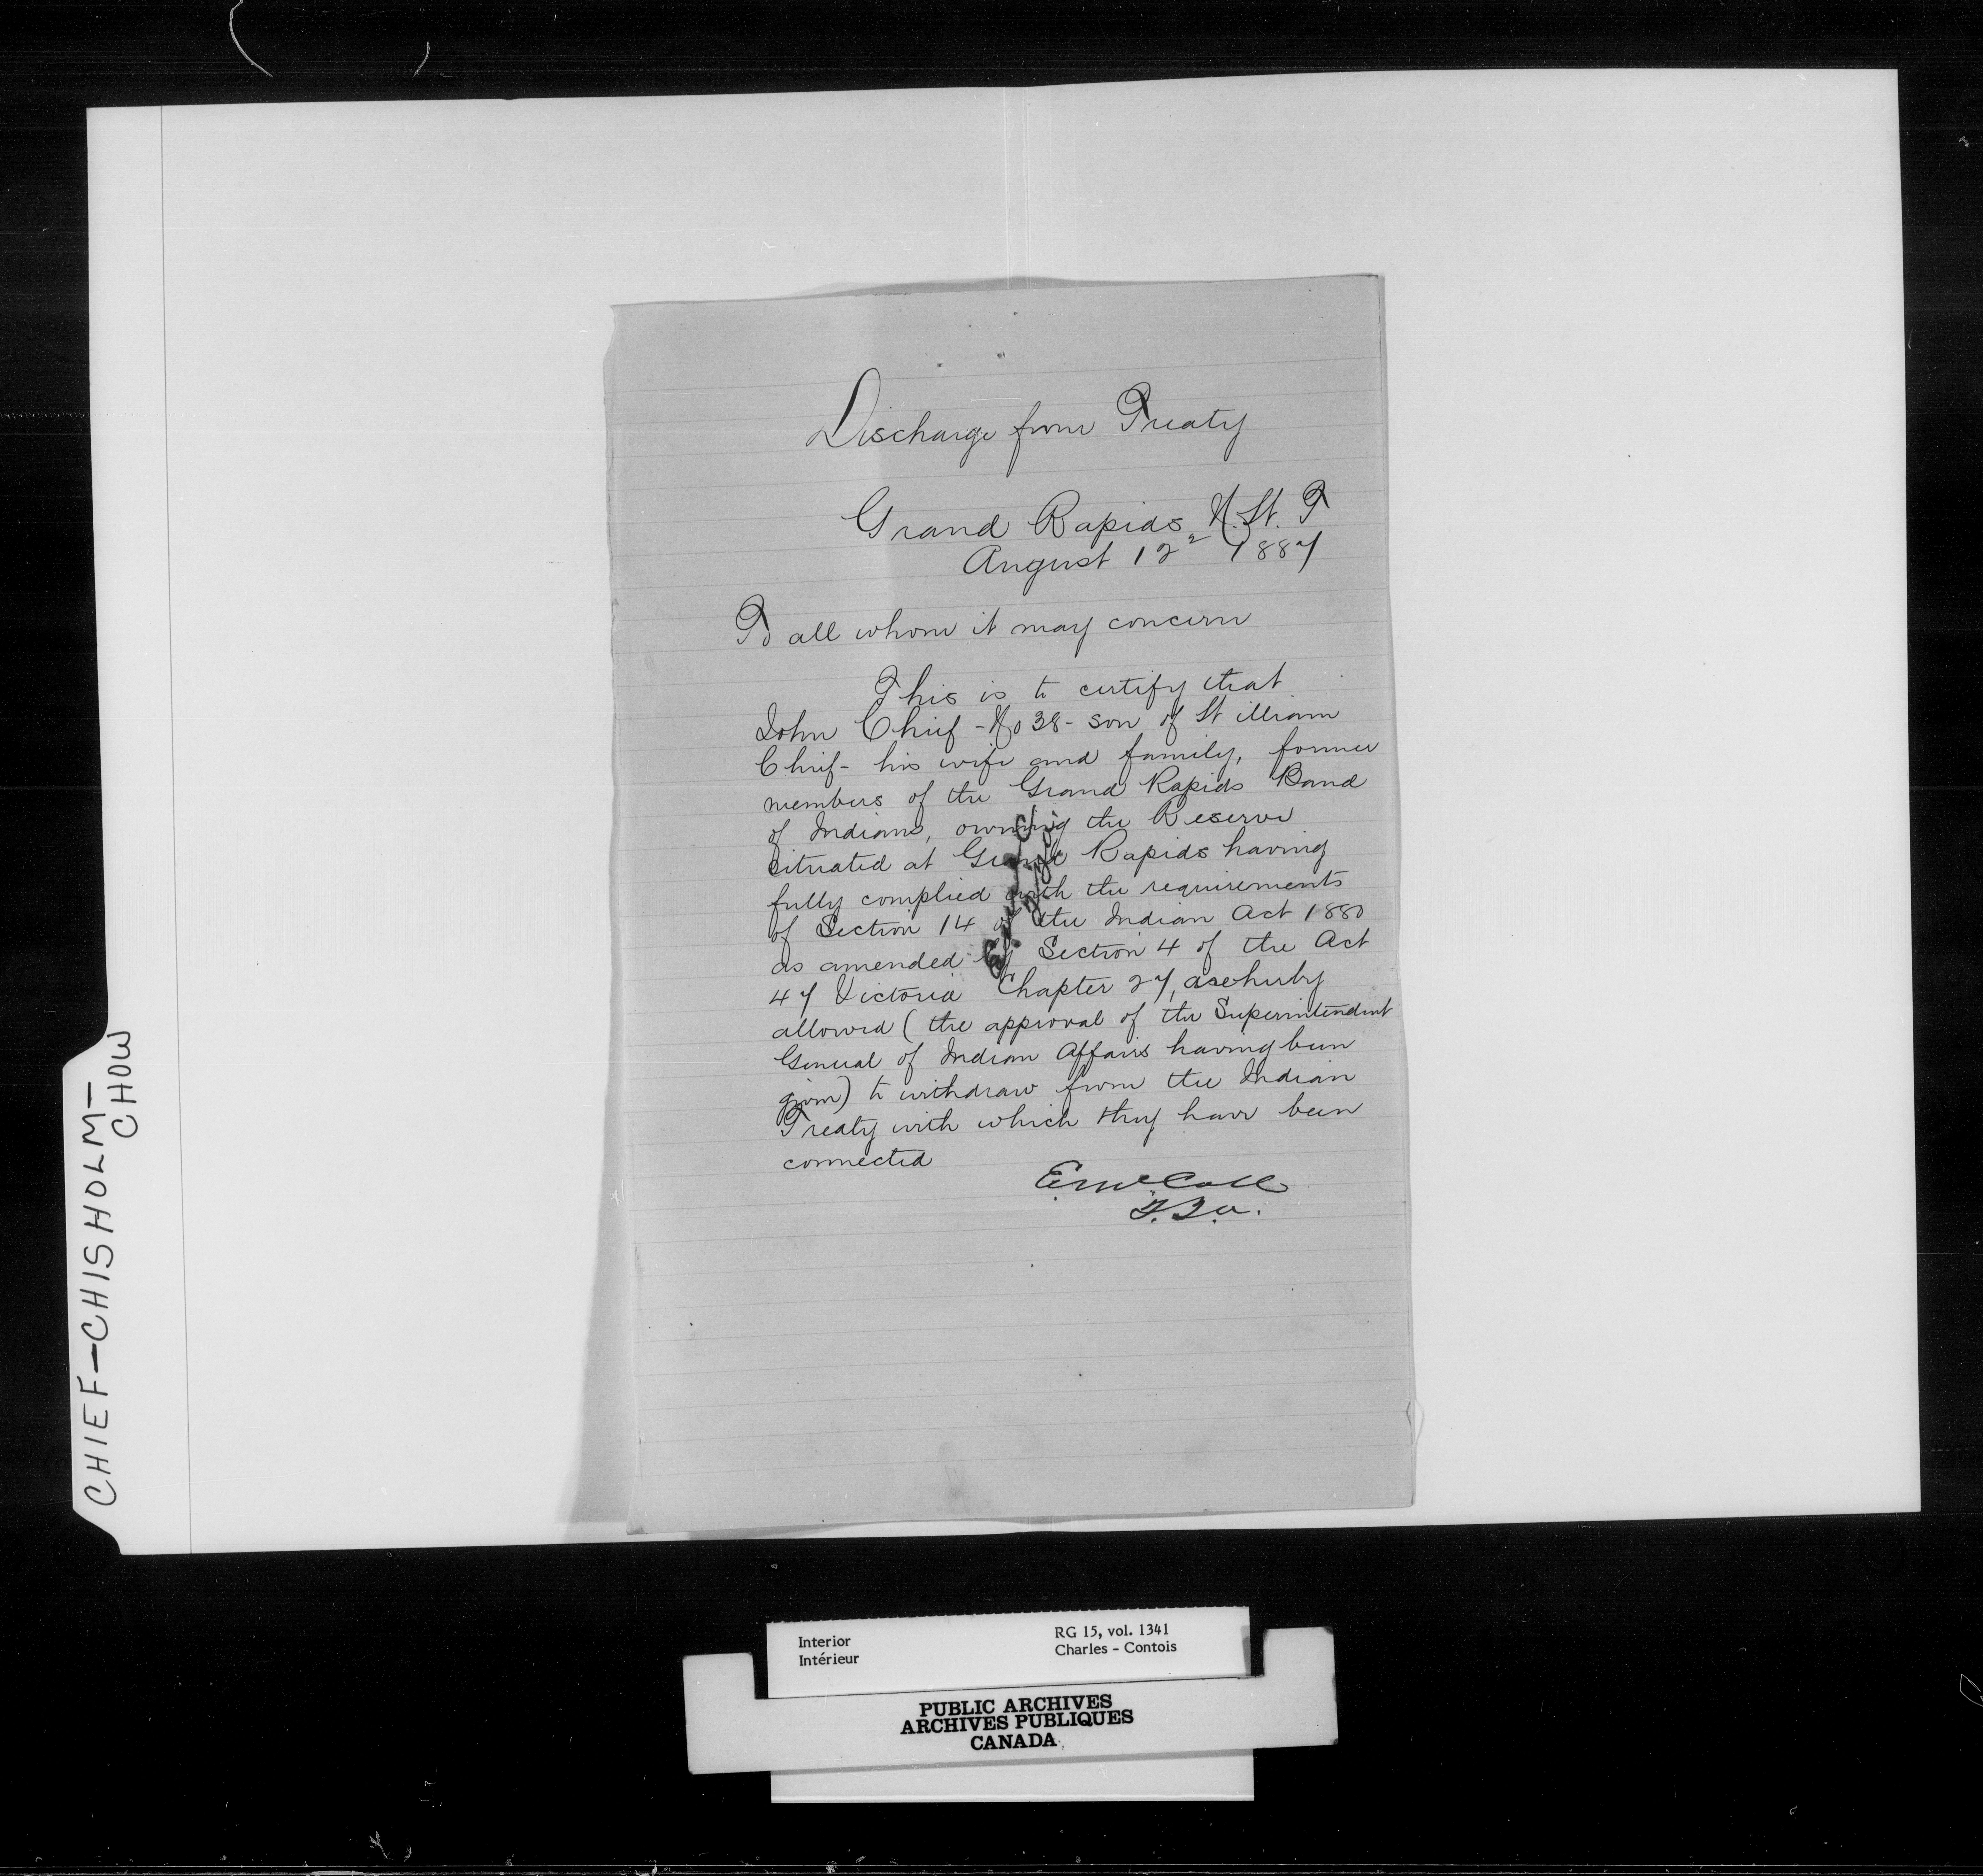 Discharge from Treaty
Grand Rapids N.W.T
August 12 1887
To all whom it may concern
This is to certify that
John Chief - No 38 - son of William
Chief - his wife and family, former
members of the Grand Rapids Band
of Indians, owning the Reserve
situated at Grand Rapids having
fully complied with the requirements
of Section 14 of the Indian Act 1880
as amended by Section 4 of the Act
47 Victoria Chapter 27, are hereby
allowed (the approval of the Superintendent
General of Indian Affairs having been
given) to withdraw from the Indian
Treaty with which they have been
connected
E McColl
CHIEF-CHISHOLM-
CHOW
Interior
Intérieur
RG 15, vol. 1341
Charles - Contois
PUBLIC ARCHIVES
ARCHIVES PUBLIQUES
CANADA